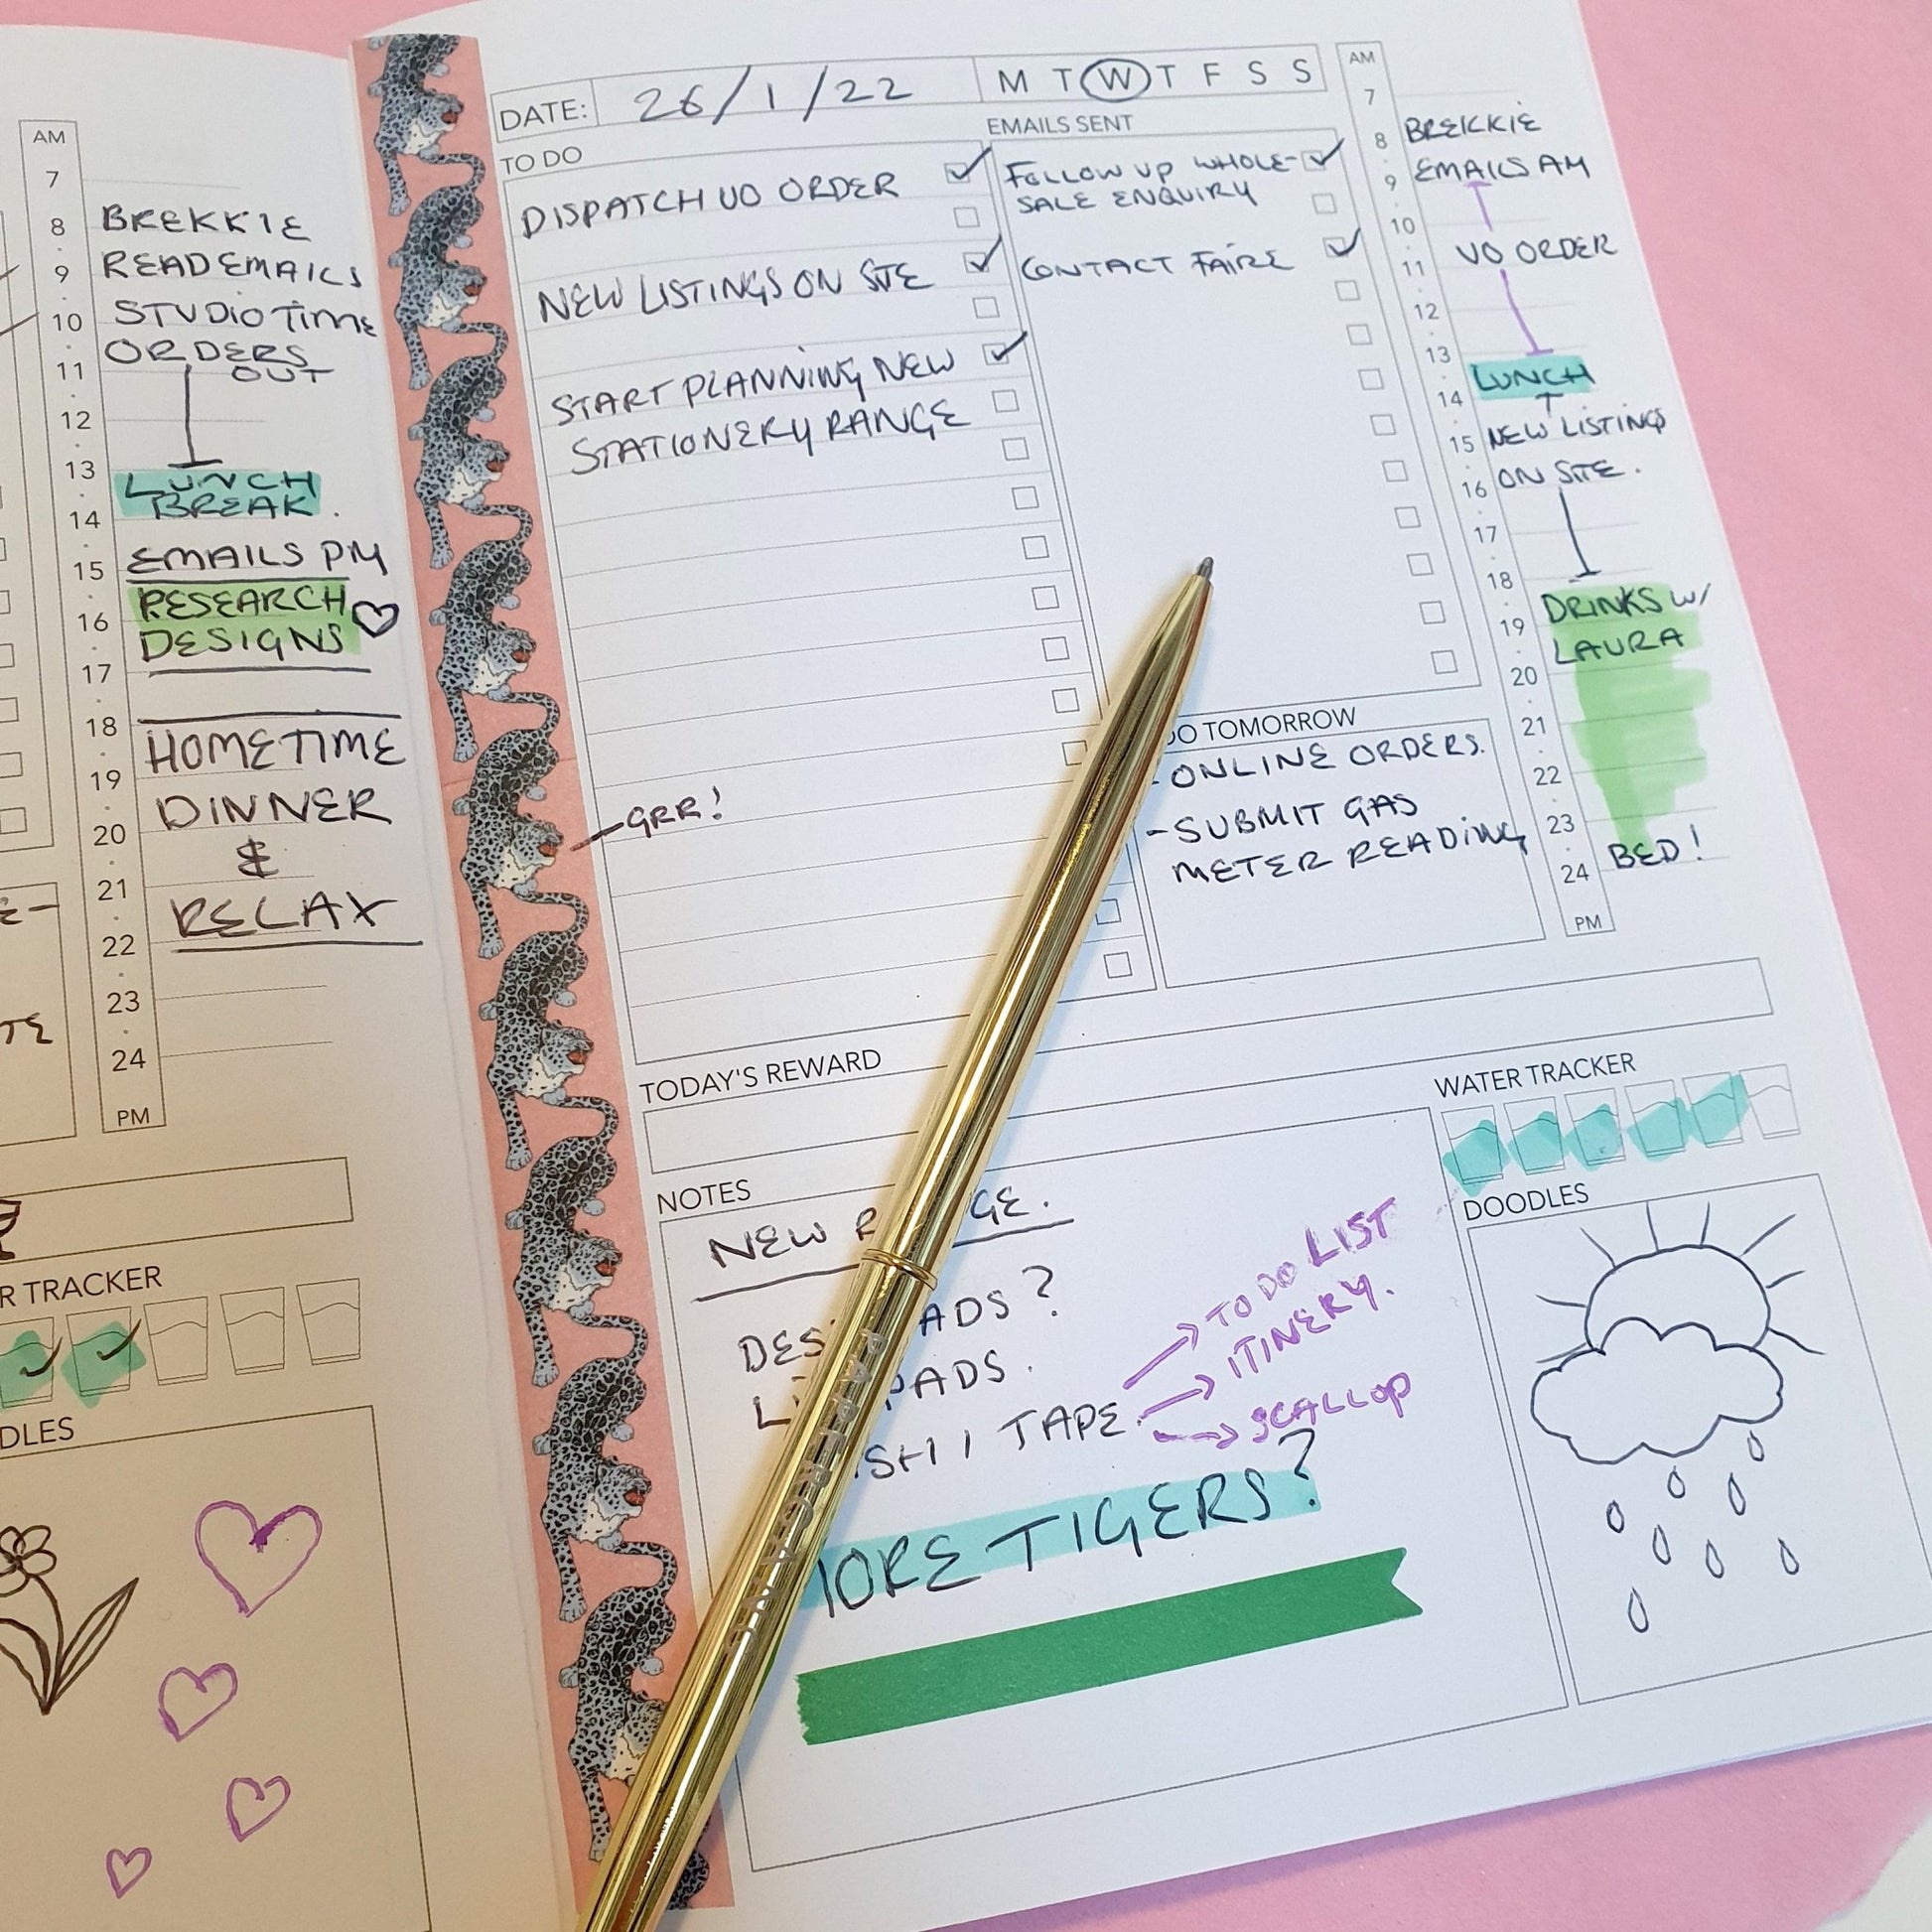 AM
7
8
9
10
11
12
13
14
15
16
17
18
19
20
21
22
23
24
PM
BREKKIE
READ EMAILS
STUDIO TIME
ORDERS
OUT
LUNCH
BREAK.
EMAILS PM
RESEARCH
DESIGNS
HOMETIME
DINNER
&
RELAX
R TRACKER
DLES
DATE: 26/1/22
M T W T F S S
TO DO
DISPATCH UO ORDER
NEW LISTINGS ON SITE
START PLANNING NEW
STATIONERY RANGE
GRR!
EMAILS SENT
FOLLOW UP WHOLE-
SALE ENQUIRY
CONTACT FAIRE
DO TOMORROW
-ONLINE ORDERS.
-SUBMIT GAS
METER READING
AM
7
8
9
10
11
12
13
14
15
16
17
18
19
20
21
22
23
24
PM
BREKKIE
EMAILS AM
UO ORDER
LUNCH
NEW LISTINGS
ON SITE.
DRINKS W/
LAURA
BED!
TODAY'S REWARD
WATER TRACKER
NOTES
NEW R GE.
DES ADS?
PADS.
SHI TAPE
TO DO LIST
ITINERY.
SCALLOP
ORE TIGERS?
DOODLES